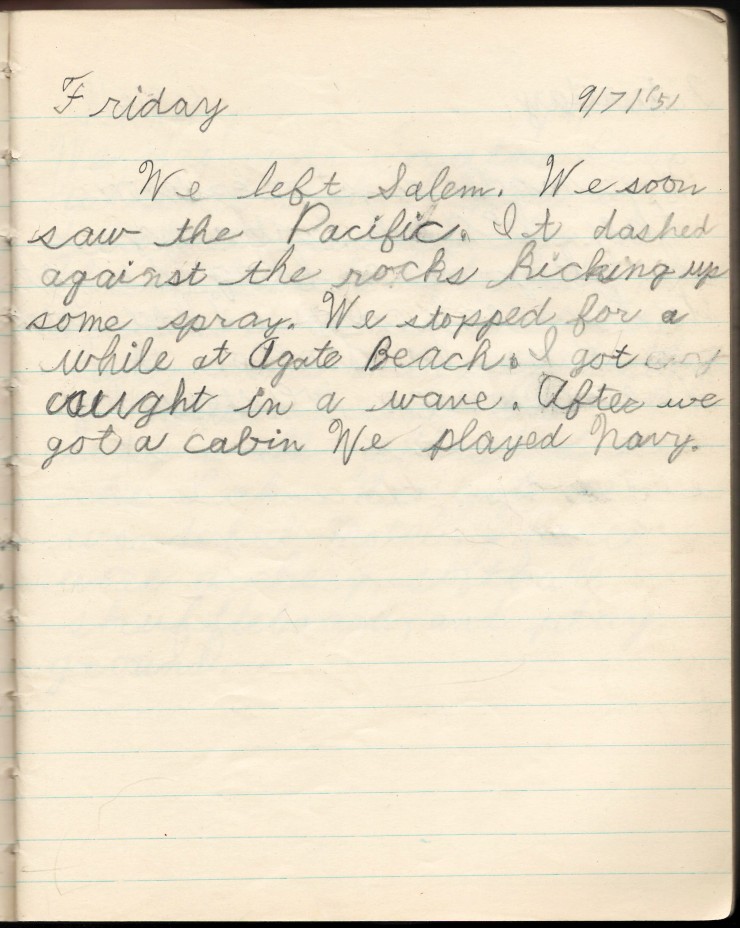 Friday 9/7/'51
We left Salem. We soon
saw the Pacific. It dashed
against the rocks kicking up
some spray. We stopped for a
while at Agate Beach. I got
caught in a wave. After we
got a cabin We played Navy.